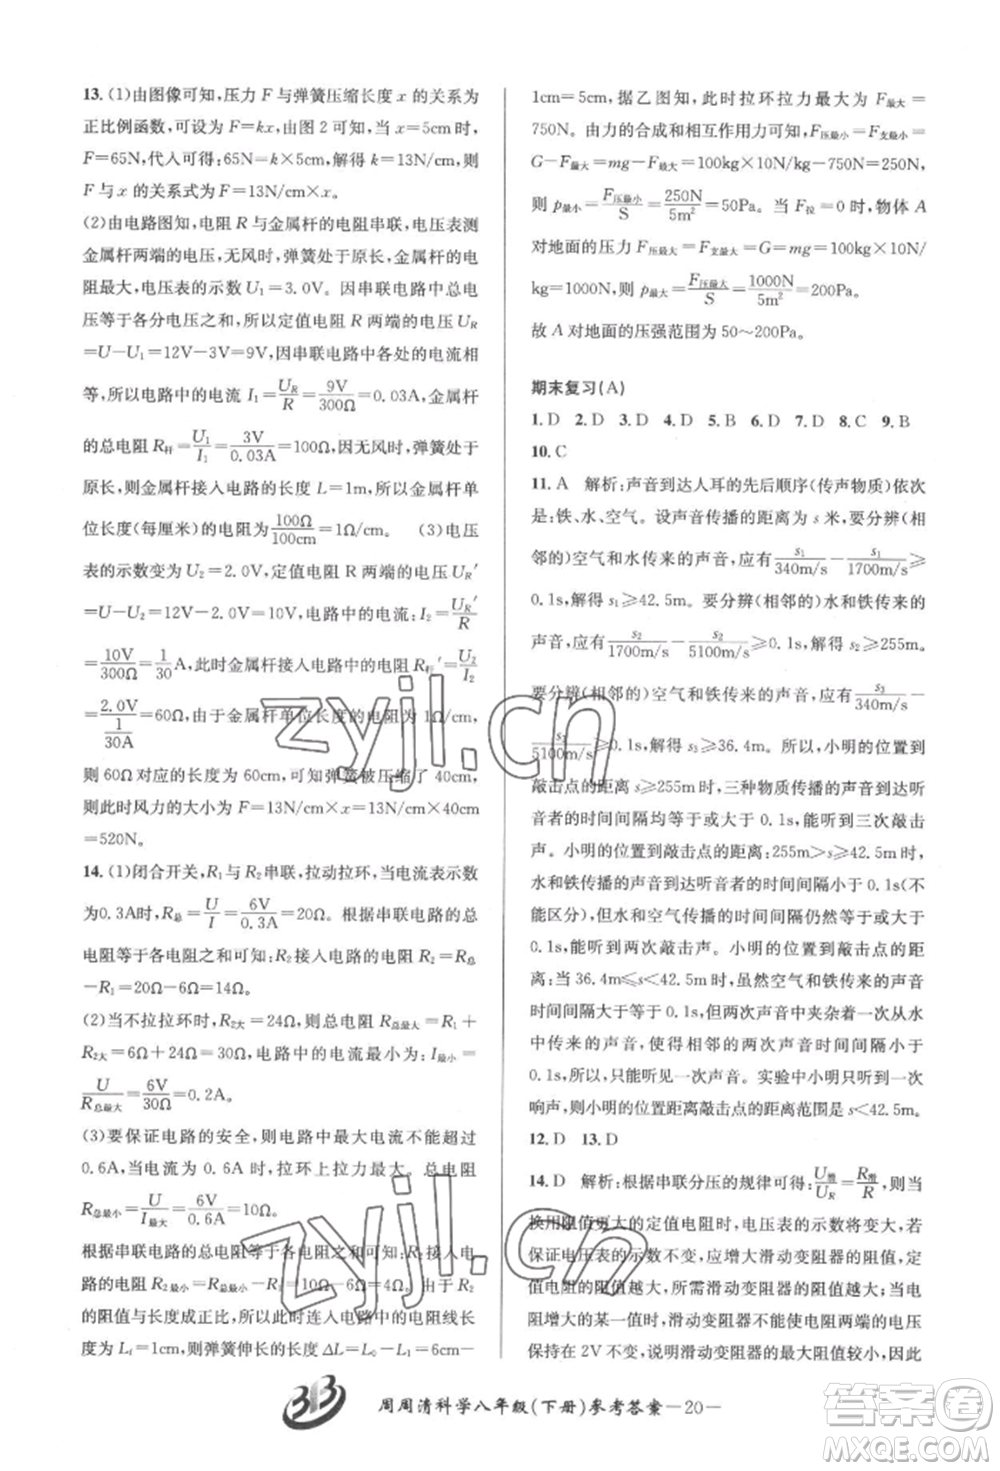 13. (1)由图像可知，压力 F 与弹簧压缩长度 x 的关系为
正比例函数，可设为 F=kx，由图 2 可知，当 x=5cm时，
F=65N，代人可得：65N=k×5cm，解得 k=13N/cm，则
F 与 x 的关系式为 F=13N/cm×x。
(2)由电路图知，电阻 R 与金属杆的电阻串联，电压表测
金属杆两端的电压，无风时，弹簧处于原长，金属杆的电
阻最大，电压表的示数 U₁=3.0V。因串联电路中总电
压等于各分电压之和，所以定值电阻 R 两端的电压 U_R
=U-U₁=12V-3V=9V，因串联电路中各处的电流相
等，所以电路中的电流 I₁=U_R/R=9V/300Ω=0.03A，金属杆
的总电阻 R杆=U₁/I₁=3V/0.03A=100Ω，因无风时，弹簧处于
原长，金属杆接入电路的长度 L=1m，所以，金属杆单
位长度(每厘米)的电阻为100Ω/100cm=1Ω/cm。 (3)电压
表的示数变为 U₂=2.0V，定值电阻 R 两端的电压 U_R′
=U-U₂=12V-2.0V=10V，电路中的电流：I₂=U_R′/R
=10V/300Ω=1/30A，此时金属杆接入电路中的电阻 R杆′=U₂/I₂
=2.0V/(1/30A)=60Ω，由于金属杆单位长度的电阻为 1Ω/cm，
则 60Ω对应的长度为 60cm，可知弹簧被压缩了 40cm，
此时风力的大小为 F=13N/cm×x=13N/cm×40cm
=520N。
14. (1)闭合开关，R₁与 R₂串联，拉动拉环，电流表示数
为0.3A时，R总=U/I=6V/0.3A=20Ω。根据串联电路的总
电阻等于各电阻之和可知：R₂接入电路的电阻 R₂=R总
-R₁=20Ω-6Ω=14Ω。
(2)当不拉拉环时，R₂大=24Ω，则总电阻 R总最大=R₁+
R₂大=6Ω+24Ω=30Ω，电路中的电流最小为：I最小=
U/R总最大=6V/30Ω=0.2A。
(3)要保证电路的安全，则电路中最大电流不能超过
0.6A，当电流为 0.6A 时，拉环上拉力最大。电路总电阻
R总最小=U/I最大=6V/0.6A=10Ω。
根据串联电路的总电阻等于各电阻之和可知：R₂接入电
路的电阻 R₂最小=R总最小-R₁=10Ω-6Ω=4Ω，由于电阻
的阻值与长度成正比，所以此时连入电路中的电阻线长
度为 L₁=1cm，则弹簧伸长的长度 ΔL=L₀-L₁=6cm-
1cm=5cm，据乙图知，此时拉环拉力最大为 F最大=
750N。由力的合成和相互作用力可知，F压最小=F支最小=
G-F最大=mg-F最大=100kg×10N/kg-750N=250N，
则 p最小=F压最小/S=250N/5m²=50Pa。当 F拉=0 时，物体 A
对地面的压力 F压最大=F支最大=G=mg=100kg×10N/
kg=1000N，则 p最大=F压最大/S=1000N/5m²=200Pa。
故 A 对地面的压强范围为 50～200Pa。
期末复习(A)
1. D 2. D 3. D 4. D 5. B 6. D 7. D 8. C 9. B
10. C
11. A 解析：声音到达人耳的先后顺序(传声物质)依次
是：铁、水、空气。设声音传播的距离为 s，要分辨(相
邻的)空气和水传来的声音，应有 s₁/340m/s-s₁/1700m/s≥
0.1s，解得 s₁≥42.5m。要分辨(相邻的)水和铁传来的
声音，应有s₂/1700m/s-s₂/5100m/s≥0.1s，解得 s₂≥255m。
要分辨(相邻的)空气和铁传来的声音，应有s₃/340m/s-
s₃/5100m/s≥0.1s，解得 s₃≥36.4m。所以，小明的位置到
敲击点的距离 s≥255m 时，三种物质传播的声音到达听
音者的时间间隔均大于或等于 0.1s，能听到三次敲击
声。小明的位置到敲击点的距离：255m>s≥42.5m 时，
水和铁传播的声音到达听音者的时间间隔小于 0.1s(不
能区分)，但水和空气传播的时间间隔仍然等于或大于
0.1s，能听到两次敲击声。小明的位置到敲击点的距
离：当 36.4m≤s<42.5m 时，虽然空气和铁传来的声音
时间间隔大于 0.1s，但由于两次声音中间夹杂有从水
中传来的声音，使得相邻的两次声音时间间隔小于
0.1s，因此，只能听见一次声音。实验中小明只听到一次
响声，所以小明的位置距离敲击点的距离范围是 s<42.5m。
12. D 13. D
14. D 解析：根据串联分压的规律可得：U滑/U_R=R滑/R，则当
换用阻值更大的定值电阻时，电压表的示数将变大，若
保证电压表的示数不变，应增大滑动变阻器的阻值，定
值电阻的阻值越大，滑动变阻器的阻值越大；当定值电阻
增大的某一值时，滑动变阻器两端的电压
保持在 2V 不变，说明滑动变阻器的最大阻值较小，因此
周周清科学八年级(下册)参考答案－20－
zyjl.cn
zyjl.cn
答案圈
MXQE.COM